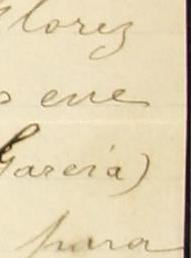 Florez
ene
García)
para